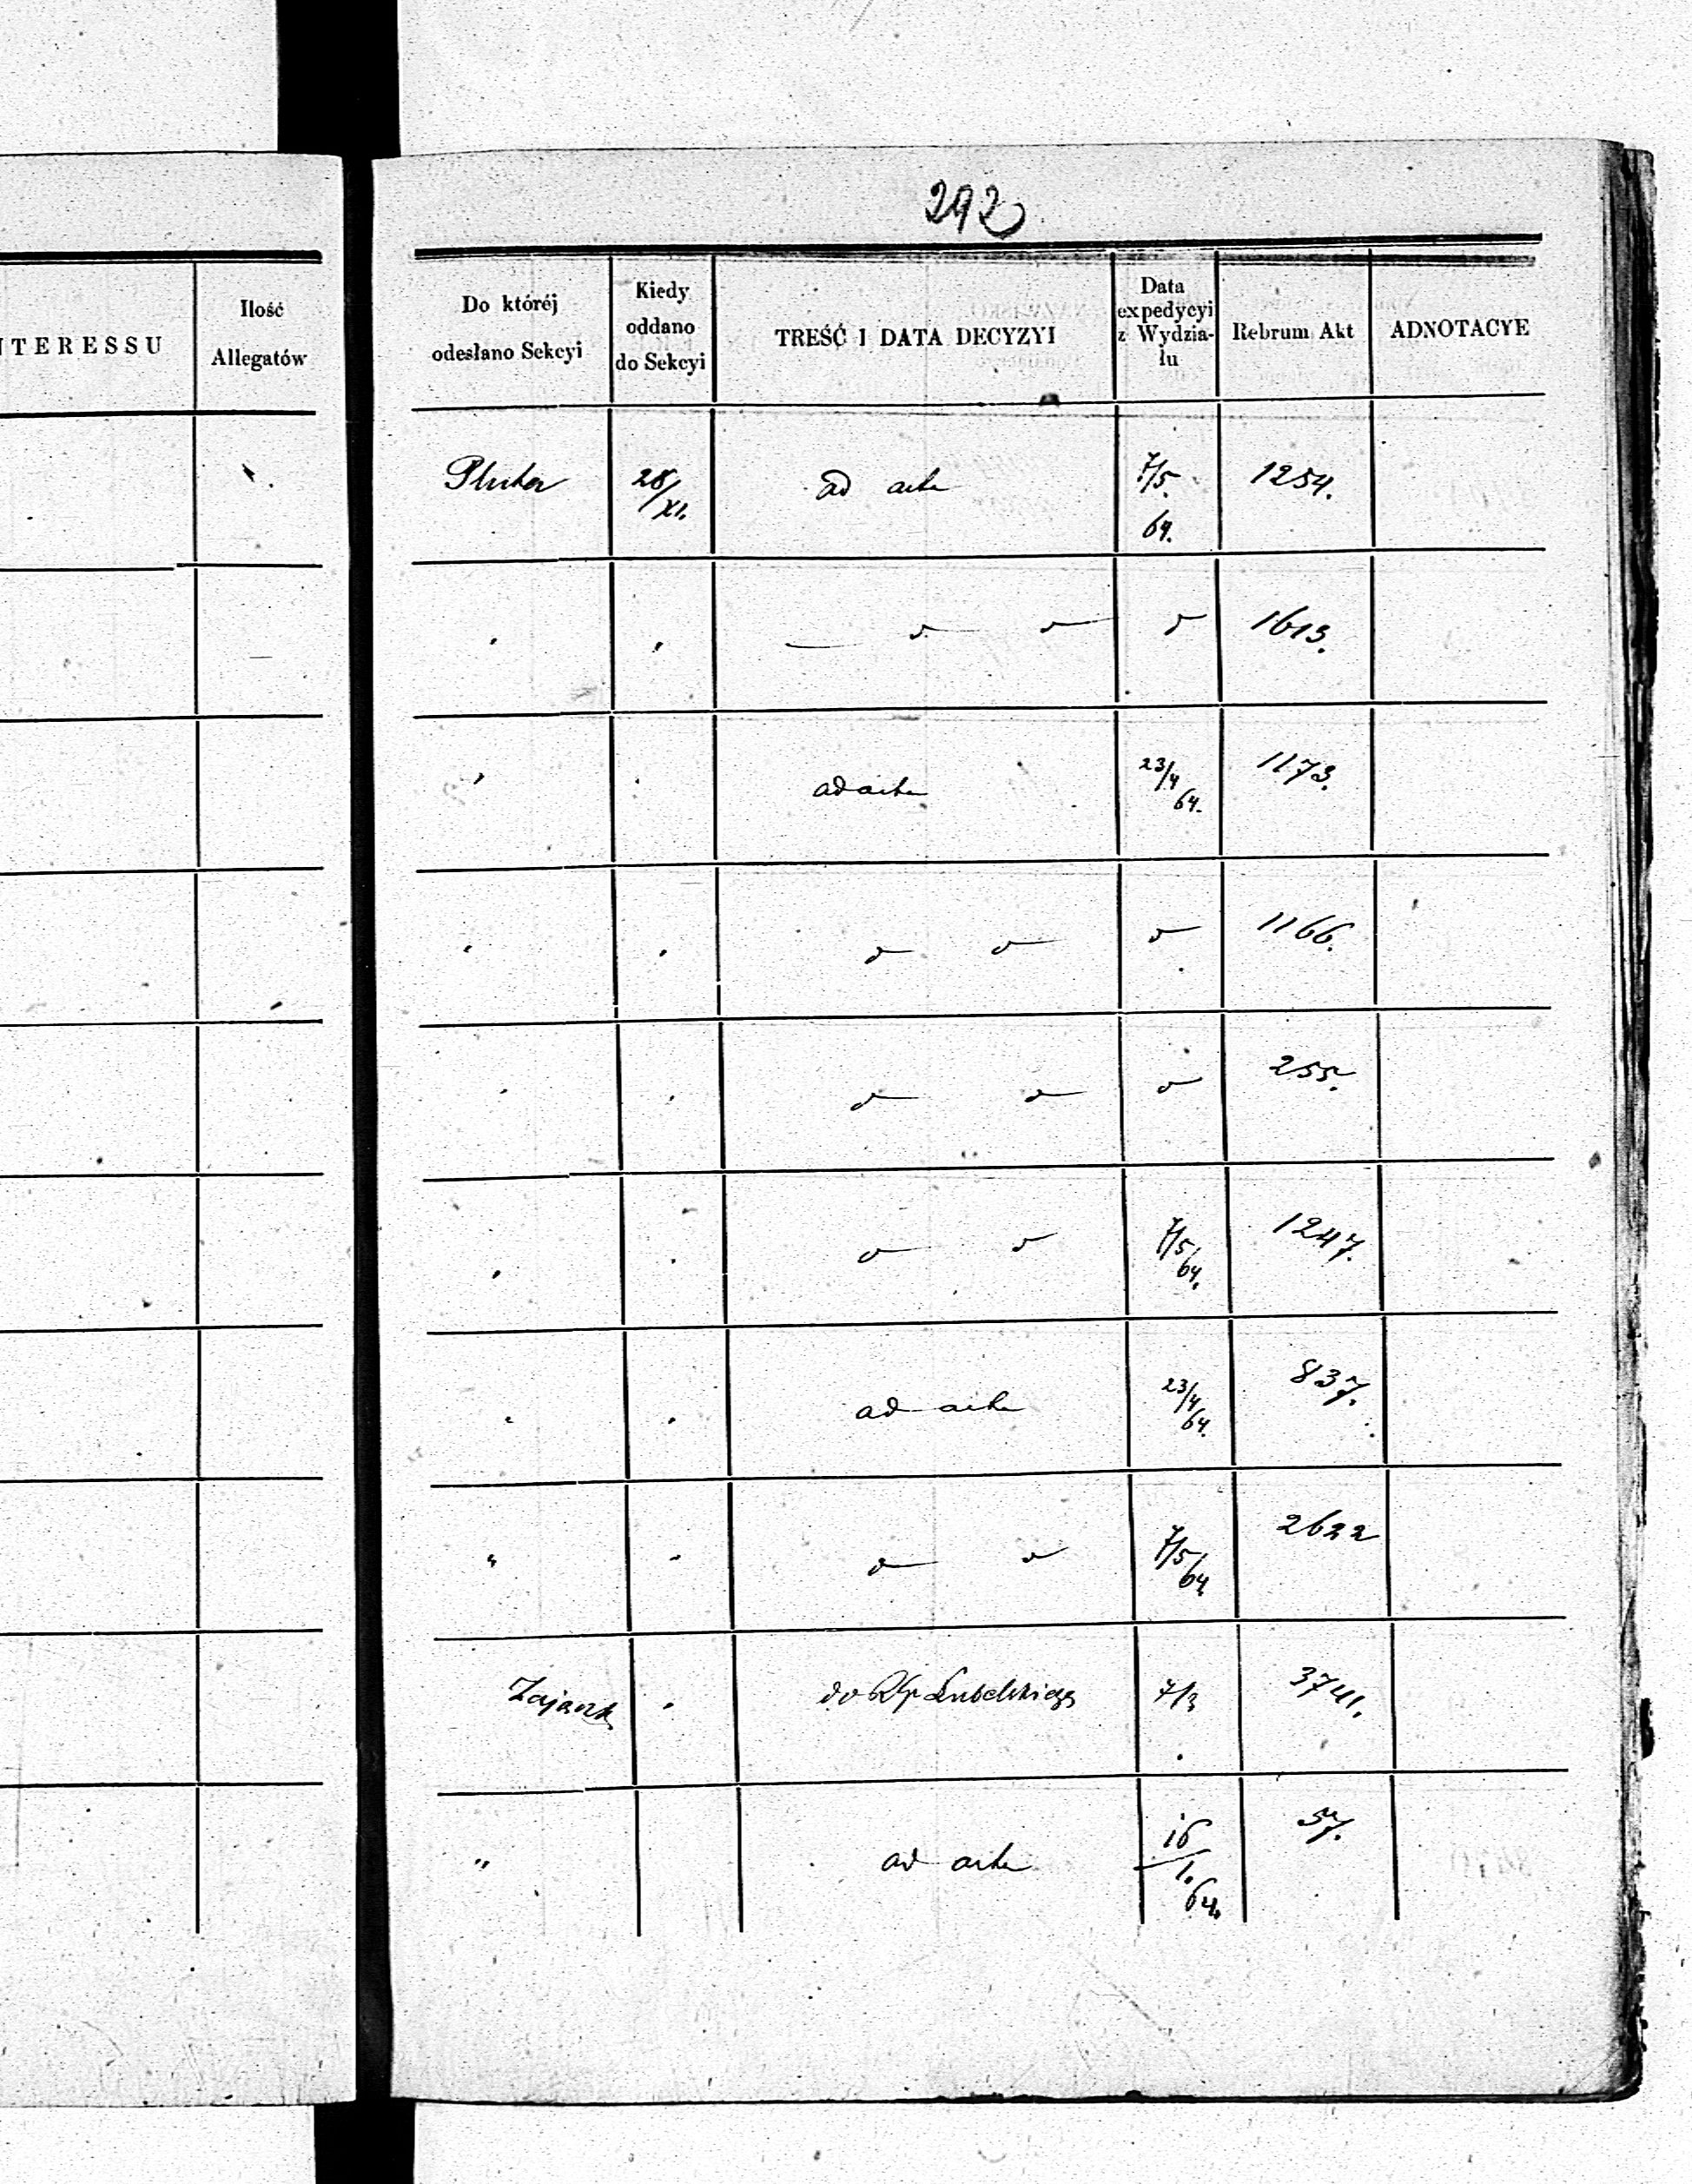 292
NTERESSU
Ilość
Allegatów
Do któréj
odesłano Sekcyi
Kiedy
oddano
do Sekcyi
TREŚĆ I DATA DECYZYI
Data
expedycyi
z Wydzia-
łu
Rebrum Akt
ADNOTACYE
28/XI. ad acta 7/5. 64. 1254.
1613.
ad acta 23/4 64. 1173.
1166.
255.
7/5/64. 1247.
ad acta 23/4/64. 837.
7/5/64 2622
Zajączk do Lubelskiego 3741.
" ad acta 16/1. 64. 57.